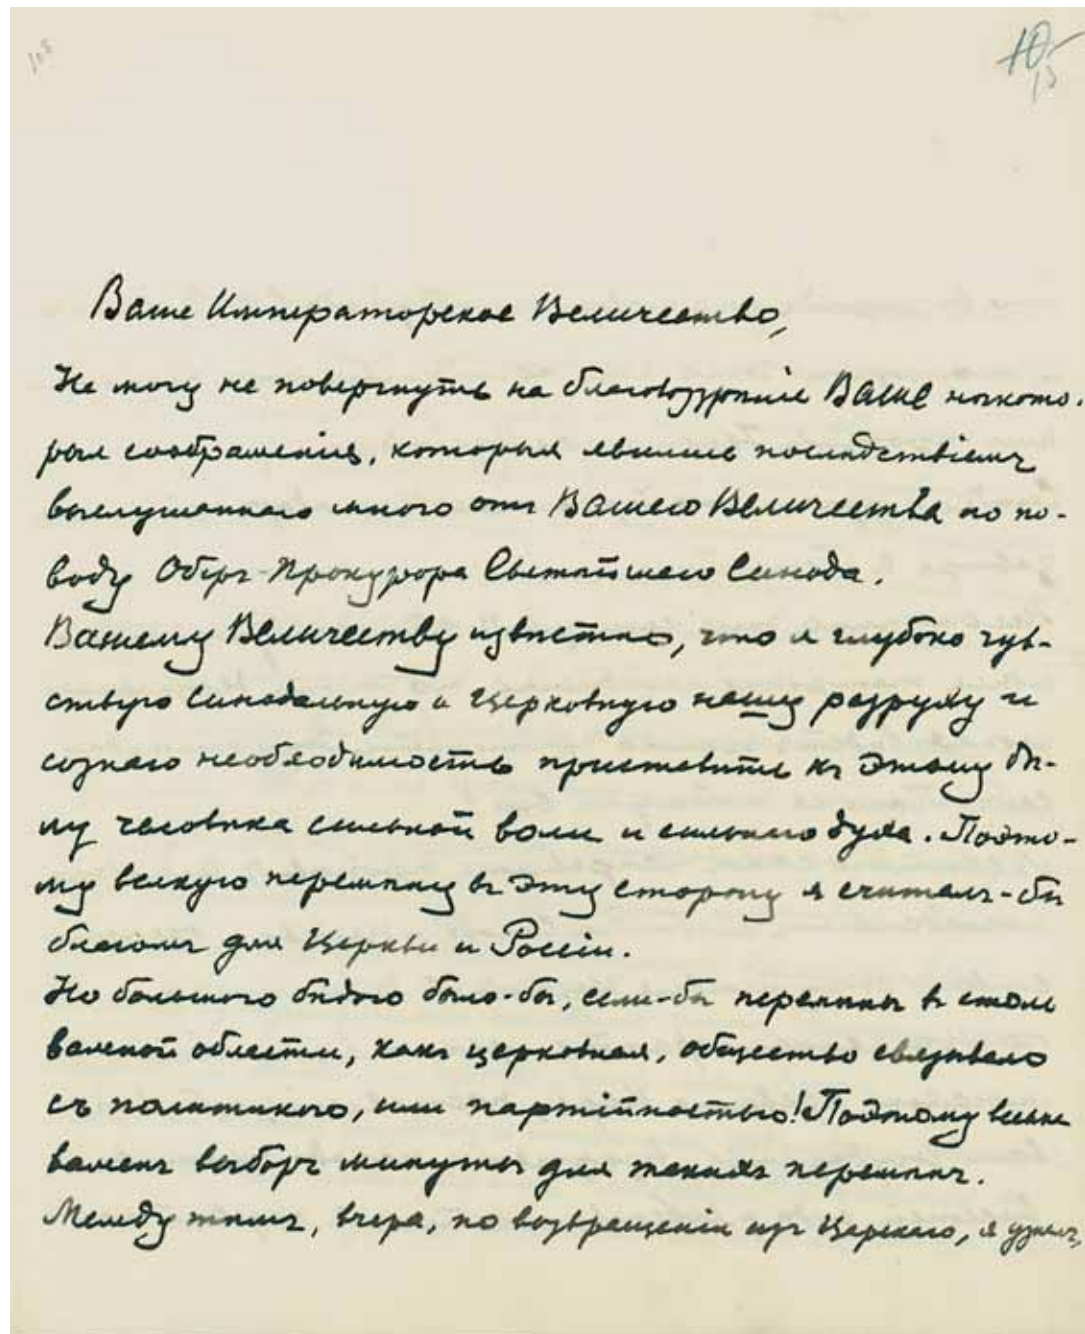 Ваше Императорское Величество,
Не могу не повергнуть на благовоззрѣніе Ваше нѣкото-
рыя соображенія, которыя явились послѣдствіемъ
выслушаннаго мною отъ Вашего Величества по по-
воду Оберъ-Прокурора Святѣйшаго Синода.
Вашему Величеству извѣстно, что я глубоко чув-
ствую Синодальную и Церковную нашу разруху и
сознаю необходимость приставить къ этому дѣ-
лу человѣка сильной воли и сильнаго духа. Поэто-
му всякую перемѣну въ эту сторону я считалъ-бы
благомъ для Церкви и Россіи.
Но большою бѣдою было-бы, если-бы перемѣны въ столь
важной области, какъ церковная, общество связывало
съ политикою, или партійностью! Поэтому весьма
важенъ выборъ минуты для такихъ перемѣнъ.
Между тѣмъ, вчера, по возвращеніи изъ Царскаго, я узналъ,